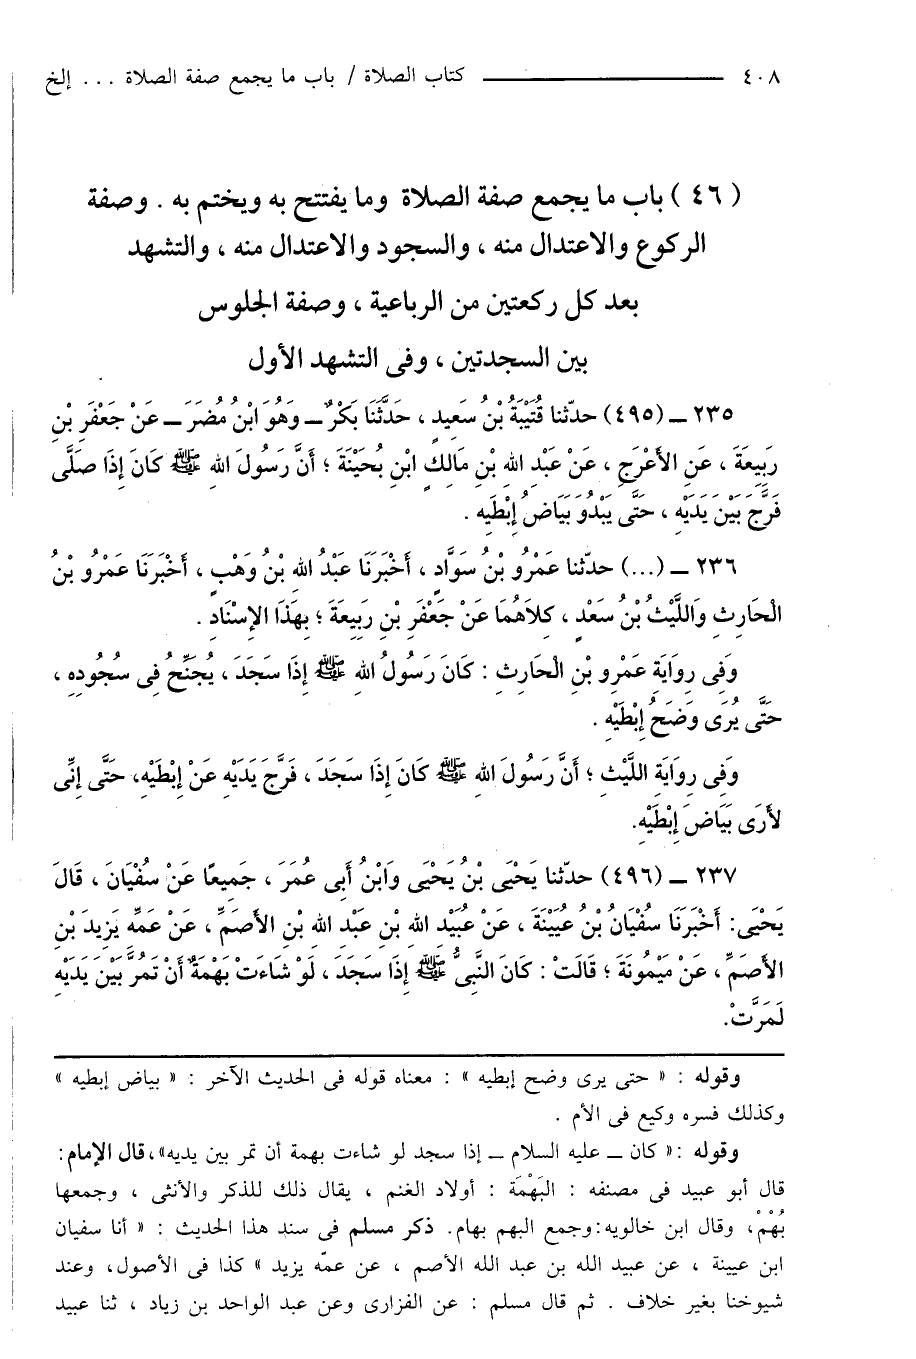 ٤٠٨ ــــــــــــــ كتاب الصلاة / باب ما يجمع صفة الصلاة ... إلخ
( ٤٦ ) باب ما يجمع صفة الصلاة وما يفتتح به ويختم به . وصفة
الركوع والاعتدال منه ، والسجود والاعتدال منه ، والتشهد
بعد كل ركعتين من الرباعية ، وصفة الجلوس
بين السجدتين ، وفى التشهد الأول
٢٣٥ ــ (٤٩٥) حدّثنا قُتَيْبَةُ بْنُ سَعِيدٍ ، حَدَّثَنَا بَكْرٌ ــ وَهُوَ ابْنُ مُضَرَ ــ عَنْ جَعْفَرِ بْنِ
رَبِيعَةَ ، عَنِ الأَعْرَجِ ، عَنْ عَبْدِ اللهِ بْنِ مَالِكٍ ابْنِ بُحَيْنَةَ ؛ أَنَّ رَسُولَ اللهِ ﷺ كَانَ إِذَا صَلَّى
فَرَّجَ بَيْنَ يَدَيْهِ ، حَتَّى يَبْدُوَ بَيَاضُ إِبْطَيْهِ .
٢٣٦ ــ (...) حدّثنا عَمْرُو بْنُ سَوَّادٍ ، أَخْبَرَنَا عَبْدُ اللهِ بْنُ وَهْبٍ ، أَخْبَرَنَا عَمْرُو بْنُ
الْحَارِثِ وَاللَّيْثُ بْنُ سَعْدٍ ، كِلاَهُمَا عَنْ جَعْفَرِ بْنِ رَبِيعَةَ ؛ بِهَذَا الإِسْنَادِ .
وَفِى رِوَايَةِ عَمْرِو بْنِ الْحَارِثِ : كَانَ رَسُولُ اللهِ ﷺ إِذَا سَجَدَ ، يُجَنِّحُ فِى سُجُودِهِ ،
حَتَّى يُرَى وَضَحُ إِبْطَيْهِ .
وَفِى رِوَايَةِ اللَّيْثِ ؛ أَنَّ رَسُولَ اللهِ ﷺ كَانَ إِذَا سَجَدَ ، فَرَّجَ يَدَيْهِ عَنْ إِبْطَيْهِ، حَتَّى إِنِّى
لأَرَى بَيَاضَ إِبْطَيْهِ.
٢٣٧ ــ (٤٩٦) حدّثنا يَحْيَى بْنُ يَحْيَى وَابْنُ أَبِى عُمَرَ ، جَمِيعًا عَنْ سُفْيَانَ ، قَالَ
يَحْيَى: أَخْبَرَنَا سُفْيَانُ بْنُ عُيَيْنَةَ ، عَنْ عُبَيْدِ اللهِ بْنِ عَبْدِ اللهِ بْنِ الأَصَمِّ ، عَنْ عَمِّهِ يَزِيدَ بْنِ
الأَصَمِّ ، عَنْ مَيْمُونَةَ ؛ قَالَتْ : كَانَ النَّبِىُّ ﷺ إِذَا سَجَدَ ، لَوْ شَاءَتْ بَهْمَةٌ أَنْ تَمُرَّ بَيْنَ يَدَيْهِ
لَمَرَّتْ.
وقوله : « حتى يرى وضح إبطيه » : معناه قوله فى الحديث الآخر : « بياض إبطيه »
وكذلك فسره وكيع فى الأم .
وقوله :« كان ــ عليه السلام ــ إذا سجد لو شاءت بهمة أن تمر بين يديه»، قال الإمام :
قال أبو عبيد فى مصنفه : البَهْمَة : أولاد الغنم ، يقال ذلك للذكر والأنثى ، وجمعها
بُهْمْ، وقال ابن خالويه:وجمع البهم بهام. ذكر مسلم فى سند هذا الحديث : « أنا سفيان
ابن عيينة ، عن عبيد الله بن عبد الله الأصم ، عن عمّه يزيد » كذا فى الأصول، وعند
شيوخنا بغير خلاف . ثم قال مسلم : عن الفزارى وعن عبد الواحد بن زياد ، ثنا عبيد